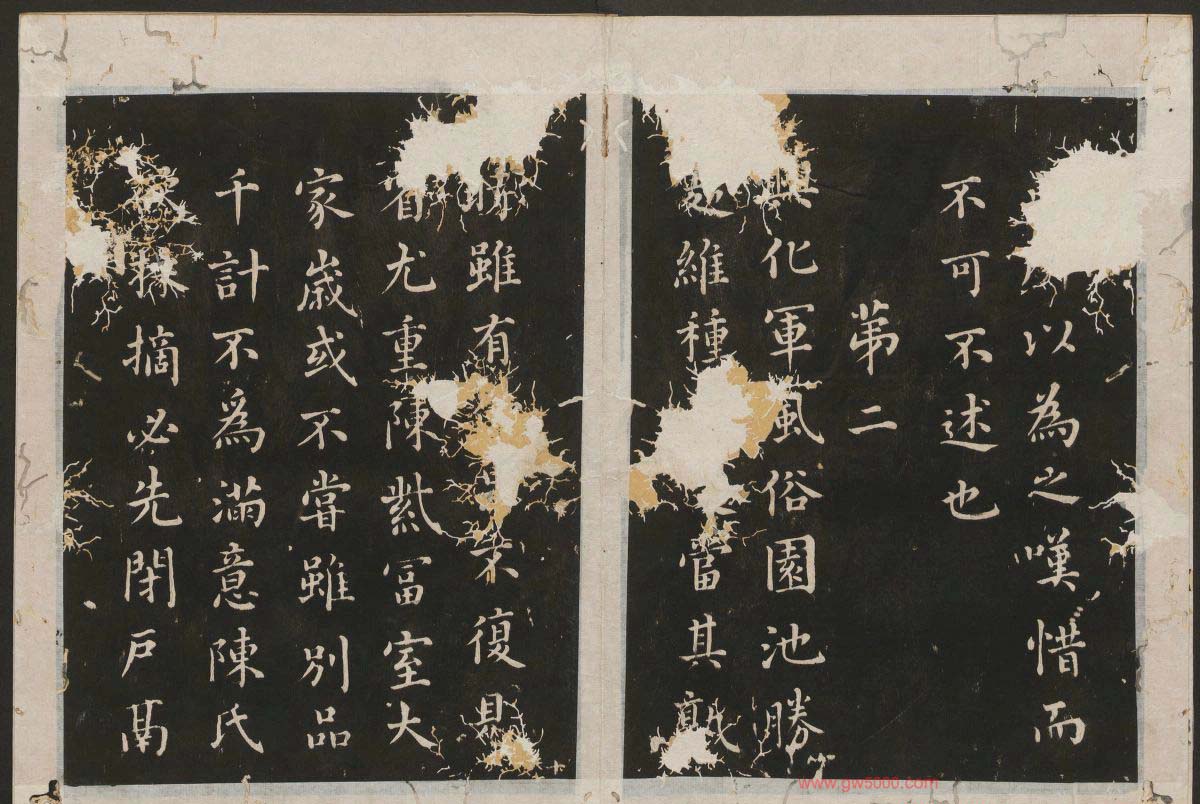 以為之嘆惜而
不可不述也
苐二
興化軍風俗園池勝
處維種當其熟
時雖有不復見
省尤重陳紫冨室大
家歲或不嘗雖別品
千計不爲滿意陳氏
採摘必先閉戶鬲
www.gw5000.com